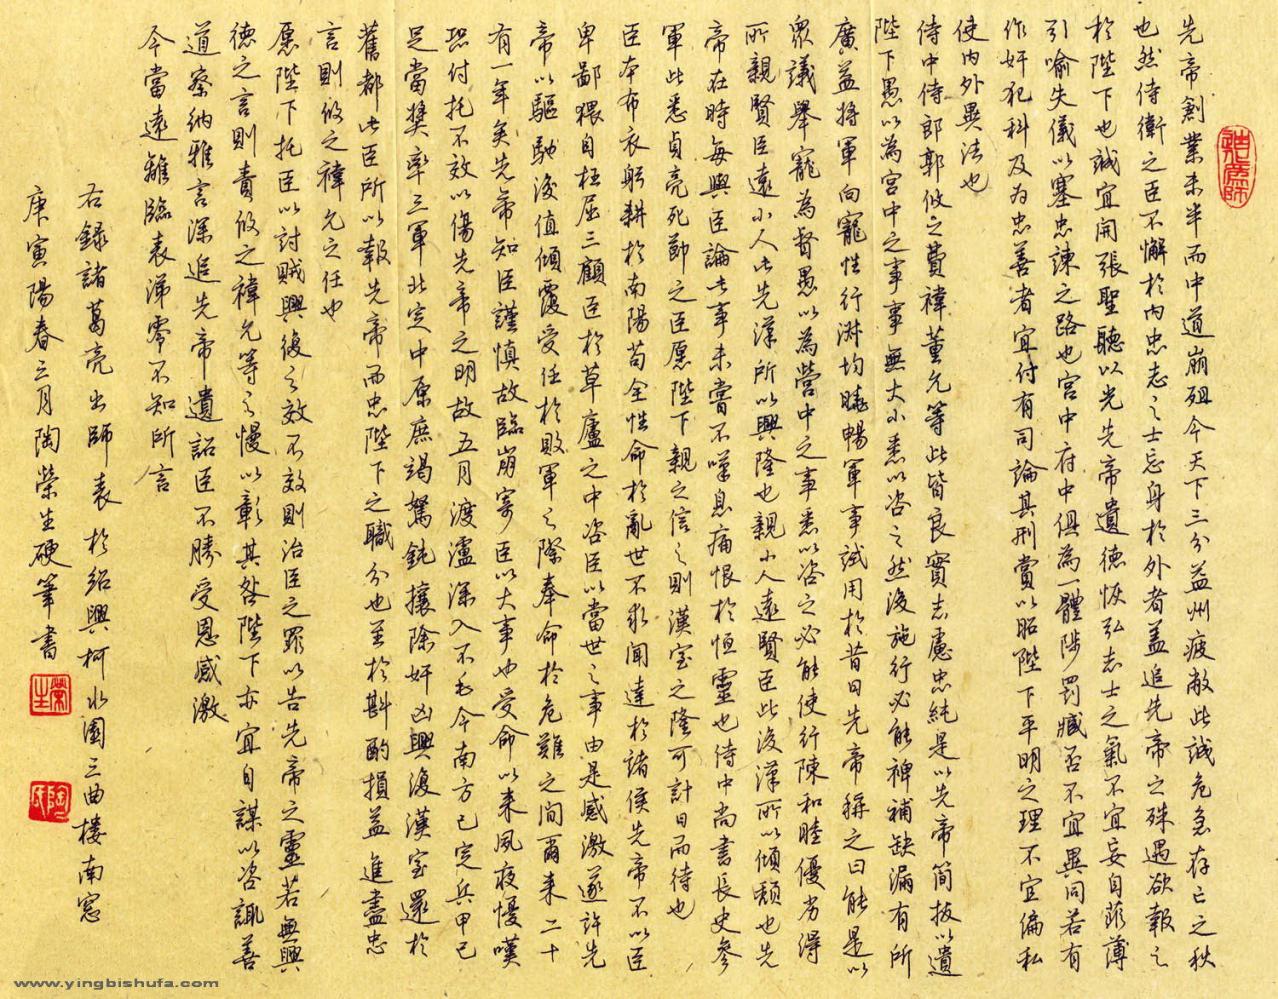 先帝創業未半而中道崩殂今天下三分益州疲敝此誠危急存亡之秋
也然侍衛之臣不懈於內忠志之士忘身於外者蓋追先帝之殊遇欲報之
於陛下也誠宜開張聖聽以光先帝遺德恢弘志士之氣不宜妄自菲薄
引喻失儀以塞忠諫之路也宮中府中俱為一體陟罰臧否不宜異同若有
作奸犯科及為忠善者宜付有司論其刑賞以昭陛下平明之理不宜偏私
使內外異法也
侍中侍郎郭攸之費禕董允等此皆良實志慮忠純是以先帝簡拔以遺
陛下愚以為宮中之事事無大小悉以咨之然後施行必能裨補缺漏有所
廣益將軍向寵性行淑均曉暢軍事試用於昔日先帝稱之曰能是以
眾議舉寵為督愚以為營中之事悉以咨之必能使行陳和睦優劣得
所親賢臣遠小人此先漢所以興隆也親小人遠賢臣此後漢所以傾頹也先
帝在時每與臣論此事未嘗不嘆息痛恨於恒靈也侍中尚書長史參
軍此悉貞亮死節之臣愿陛下親之信之則漢室之隆可計日而待也
臣本布衣躬耕於南陽苟全性命於亂世不求聞達於諸侯先帝不以臣
卑鄙猥自枉屈三顧臣於草廬之中咨臣以當世之事由是感激遂許先
帝以驅馳後值傾覆受任於敗軍之際奉命於危難之間爾來二十
有一年矣先帝知臣謹慎故臨崩寄臣以大事也受命以來夙夜憂嘆
恐付托不效以傷先帝之明故五月渡瀘深入不毛今南方已定兵甲已
足當獎率三軍北定中原庶竭駑鈍攘除奸凶興復漢室還於
舊都此臣所以報先帝而忠陛下之職分也至於斟酌損益進盡忠
言則攸之禕允之任也
愿陛下托臣以討賊興復之效不效則治臣之罪以告先帝之靈若無興
德之言則責攸之禕允等之慢以彰其咎陛下亦宜自謀以咨諏善
道察納雅言深追先帝遺詔臣不勝受恩感激
今當遠離臨表涕零不知所言
右錄諸葛亮出師表於紹興柯水園三曲樓南窗
庚寅陽春三月陶榮生硬筆書
榮生
陶氏
www.yingbishufa.com